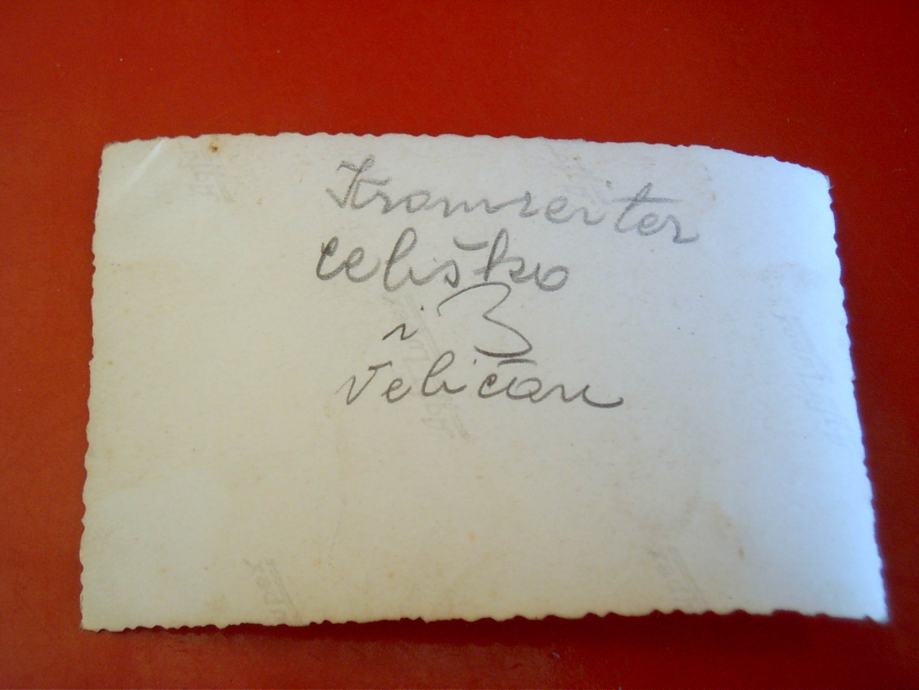 Kramreiter
Celiško
i 3
Veličan